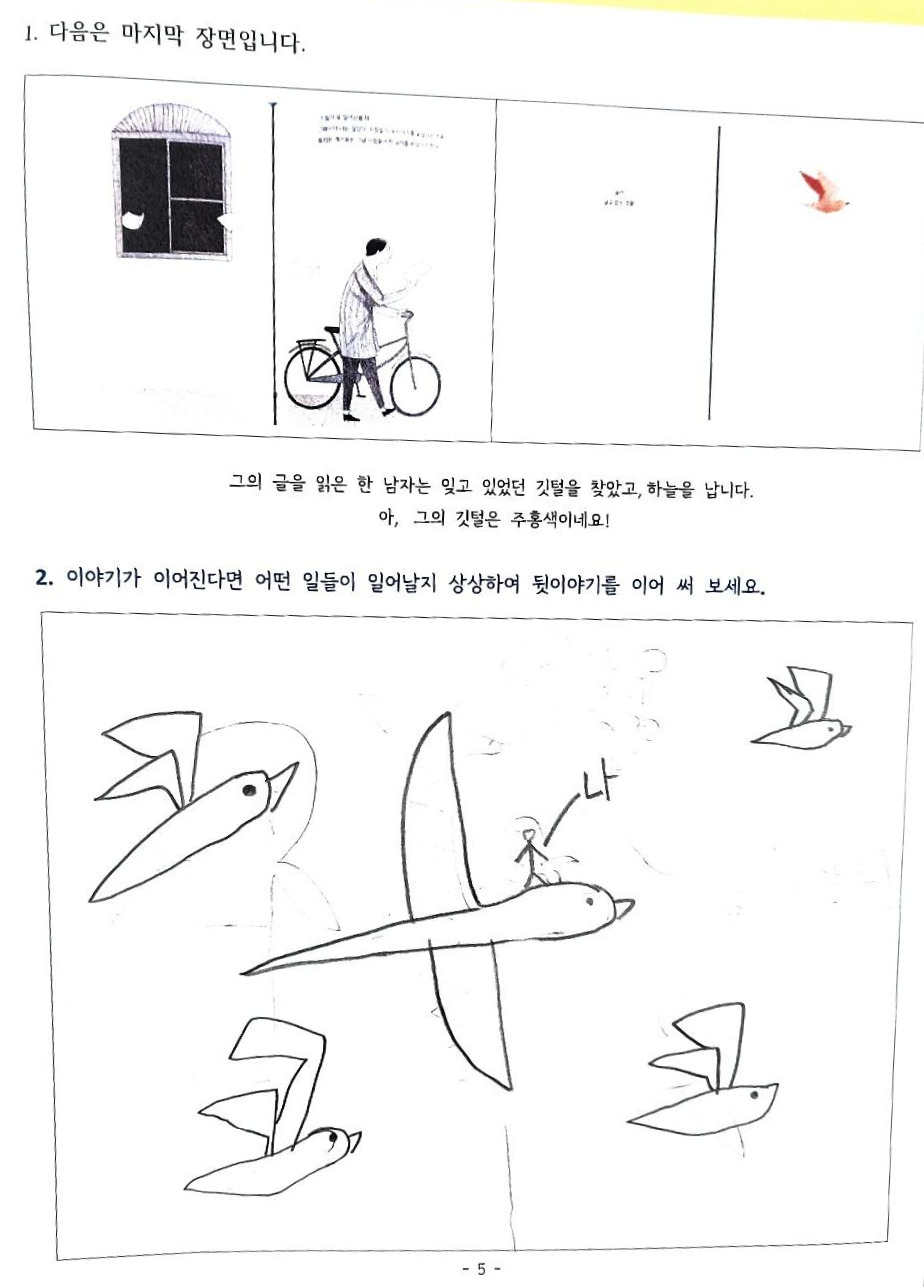 1. 다음은 마지막 장면입니다.
그의 글을 읽은 한 남자는 잊고 있었던 깃털을 찾았고, 하늘을 납니다.
아, 그의 깃털은 주홍색이네요!
2. 이야기가 이어진다면 어떤 일들이 일어날지 상상하여 뒷이야기를 이어 써 보세요.
나
- 5 -